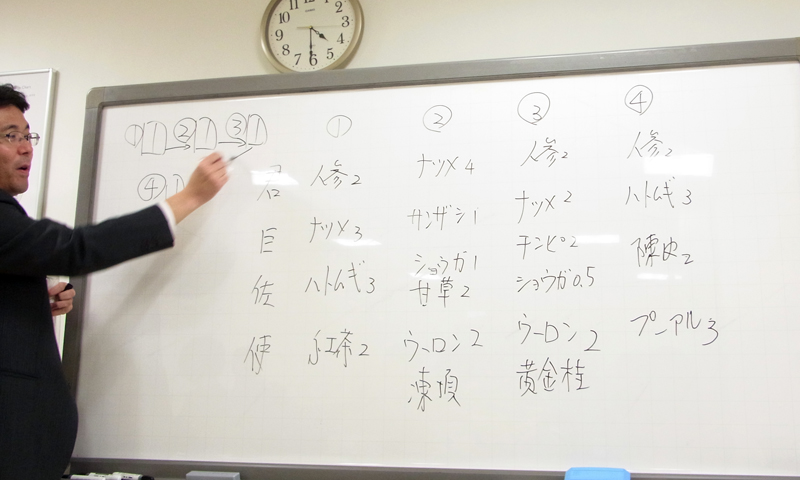 ① → ② → ③
④
① ② ③ ④
君 人参2 ナツメ4 人参2 人参2
臣 ナツメ3 サンザシ1 ナツメ2 ハトムギ3
チンピ2 陳皮2
佐 ハトムギ3 ショウガ1 ショウガ0.5
甘草2
使 紅茶2 ウーロン2 ウーロン2 プーアル3
凍頂 黄金桂
12 1 2 3 4 5 6 7 8 9 10 11